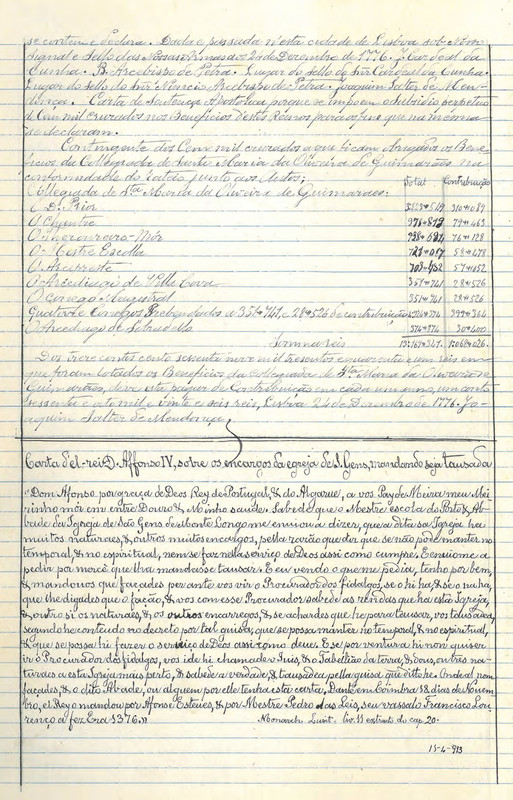 se contem e declara. Dada e passada n'esta cidade de Lisboa sob Nosso
Signal e Sello das Nossas Armas aos 24 de Dezembro de 1776. J. Cardeal da
Cunha. B. Arcebispo de Petra. Lugar do sello do Snr Cardeal da Cunha.
Lugar do sello do Snr Nuncio Arcebispo de Petra. Joaquim Salter de Men-
donça. Carta de Sentença Apostolica porque se impoem o subsidio perpetuo
de Cem mil cruzados nos Beneficios destes Reinos para o fim que na mesma
se declaram.
Contingente dos Cem mil cruzados a que ficam obrigados os Bene-
ficios da Collegiada de Santa Maria da Oliveira de Guimarães na
conformidade do junto aos Autos:
Collegiada de Sta Maria da Oliveira de Guimaraes:
Total Contribuição
O D. Prior 310#089
O Chantre 976#813 79#463
O Thezoureiro-Mór 76#128
O Mestre Escolla 58#478
O Arcipreste 703#452 57#652
O Arcediago de Villa Cova 351#741 28#526
O Conego Magistral 351#741 28#526
Quatorze Conegos Prebendados a 351#741 e 28#526 de contribuição 399#364
O Arcediago de Sobradello 374#774 30#400
Somma reis 13:169#341. 1:068#026.
Dos treze contos cento sessenta nove mil tresentos e quarenta e um reis em
que foram lotados os Beneficios da Collegiada de Sta Maria da Oliveira de
Guimarães, deve esta pagar de Contribuição em cada um anno, um conto
sessenta e oito mil e vinte e seis reis, Lisboa 24 de Dezembro de 1776. Jo-
aquim Salter de Mendonça.
Carta d'el-rei D. Affonso IV, sobre os encargos da egreja de S. Gens, mandando seja tausada
"Dom Afonso por graça de Deos Rey de Portugal, & do Algarue, a vos Pay de Meira meu Mei
rinho mór em entre Douro & Minho saude. Sabede que o Mestre escola do Porto & A-
bbade da Igreja de São Gens de Monte Longo me enuiou a dizer, que a dita sa Igreja ha
muitos naturaes, & outros muitos encargos, pella razão que dar que se não pode manter no
temporal, & no espiritual, nem se faz nella seruiço de Deos assi como cumpre. E enuiome a
pedir por mercè que lha mandasse tausar. E eu vendo o que me pedia, tenho por bem,
& mandouos que façades perante vos vir o Procurador dos fidalgos, se o hi ha, & se o na ha,
que lhe digades que o fação, & vos com esse Procurador sabede as rendas que ha esta Igreja,
& outro si os naturaes, & os outros encarregos, & se achardes que he para tausar, vos tausadea,
segundo he conteudo no decreto por tal guisa, que se possa manter no temporal, & no espiritual,
& que se possa hi fazer o seruiço de Deos assi como deue. E se por ventura hi non quiser
vir o Procurador dos fidalgos, vos ide hi chamade o Juis, & o Tabellião da terra, & dous, ou tres na-
turaes a esta Igreja mais perto, & sabede a verdade, & tausadea pella guisa que dito he. Onde al nom
façades, & o dito Abade, ou alguem por elle tenha esta carta. Dante em Coimbra 18. dias de Nouem
bro, el Rey o mandou por Afonso Esteues, & por Mestre Pedro das Leis, seu vassalo Francisco Lou-
renço a fez Era 1376."
Monarch. Lusit. liv. 11 extracto do cap. 20.
15-4-913